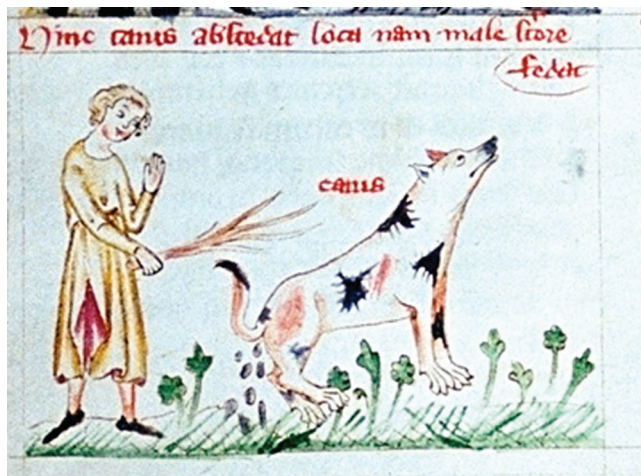 Hinc canis abscedat loca nam male stcore
fedat
canis